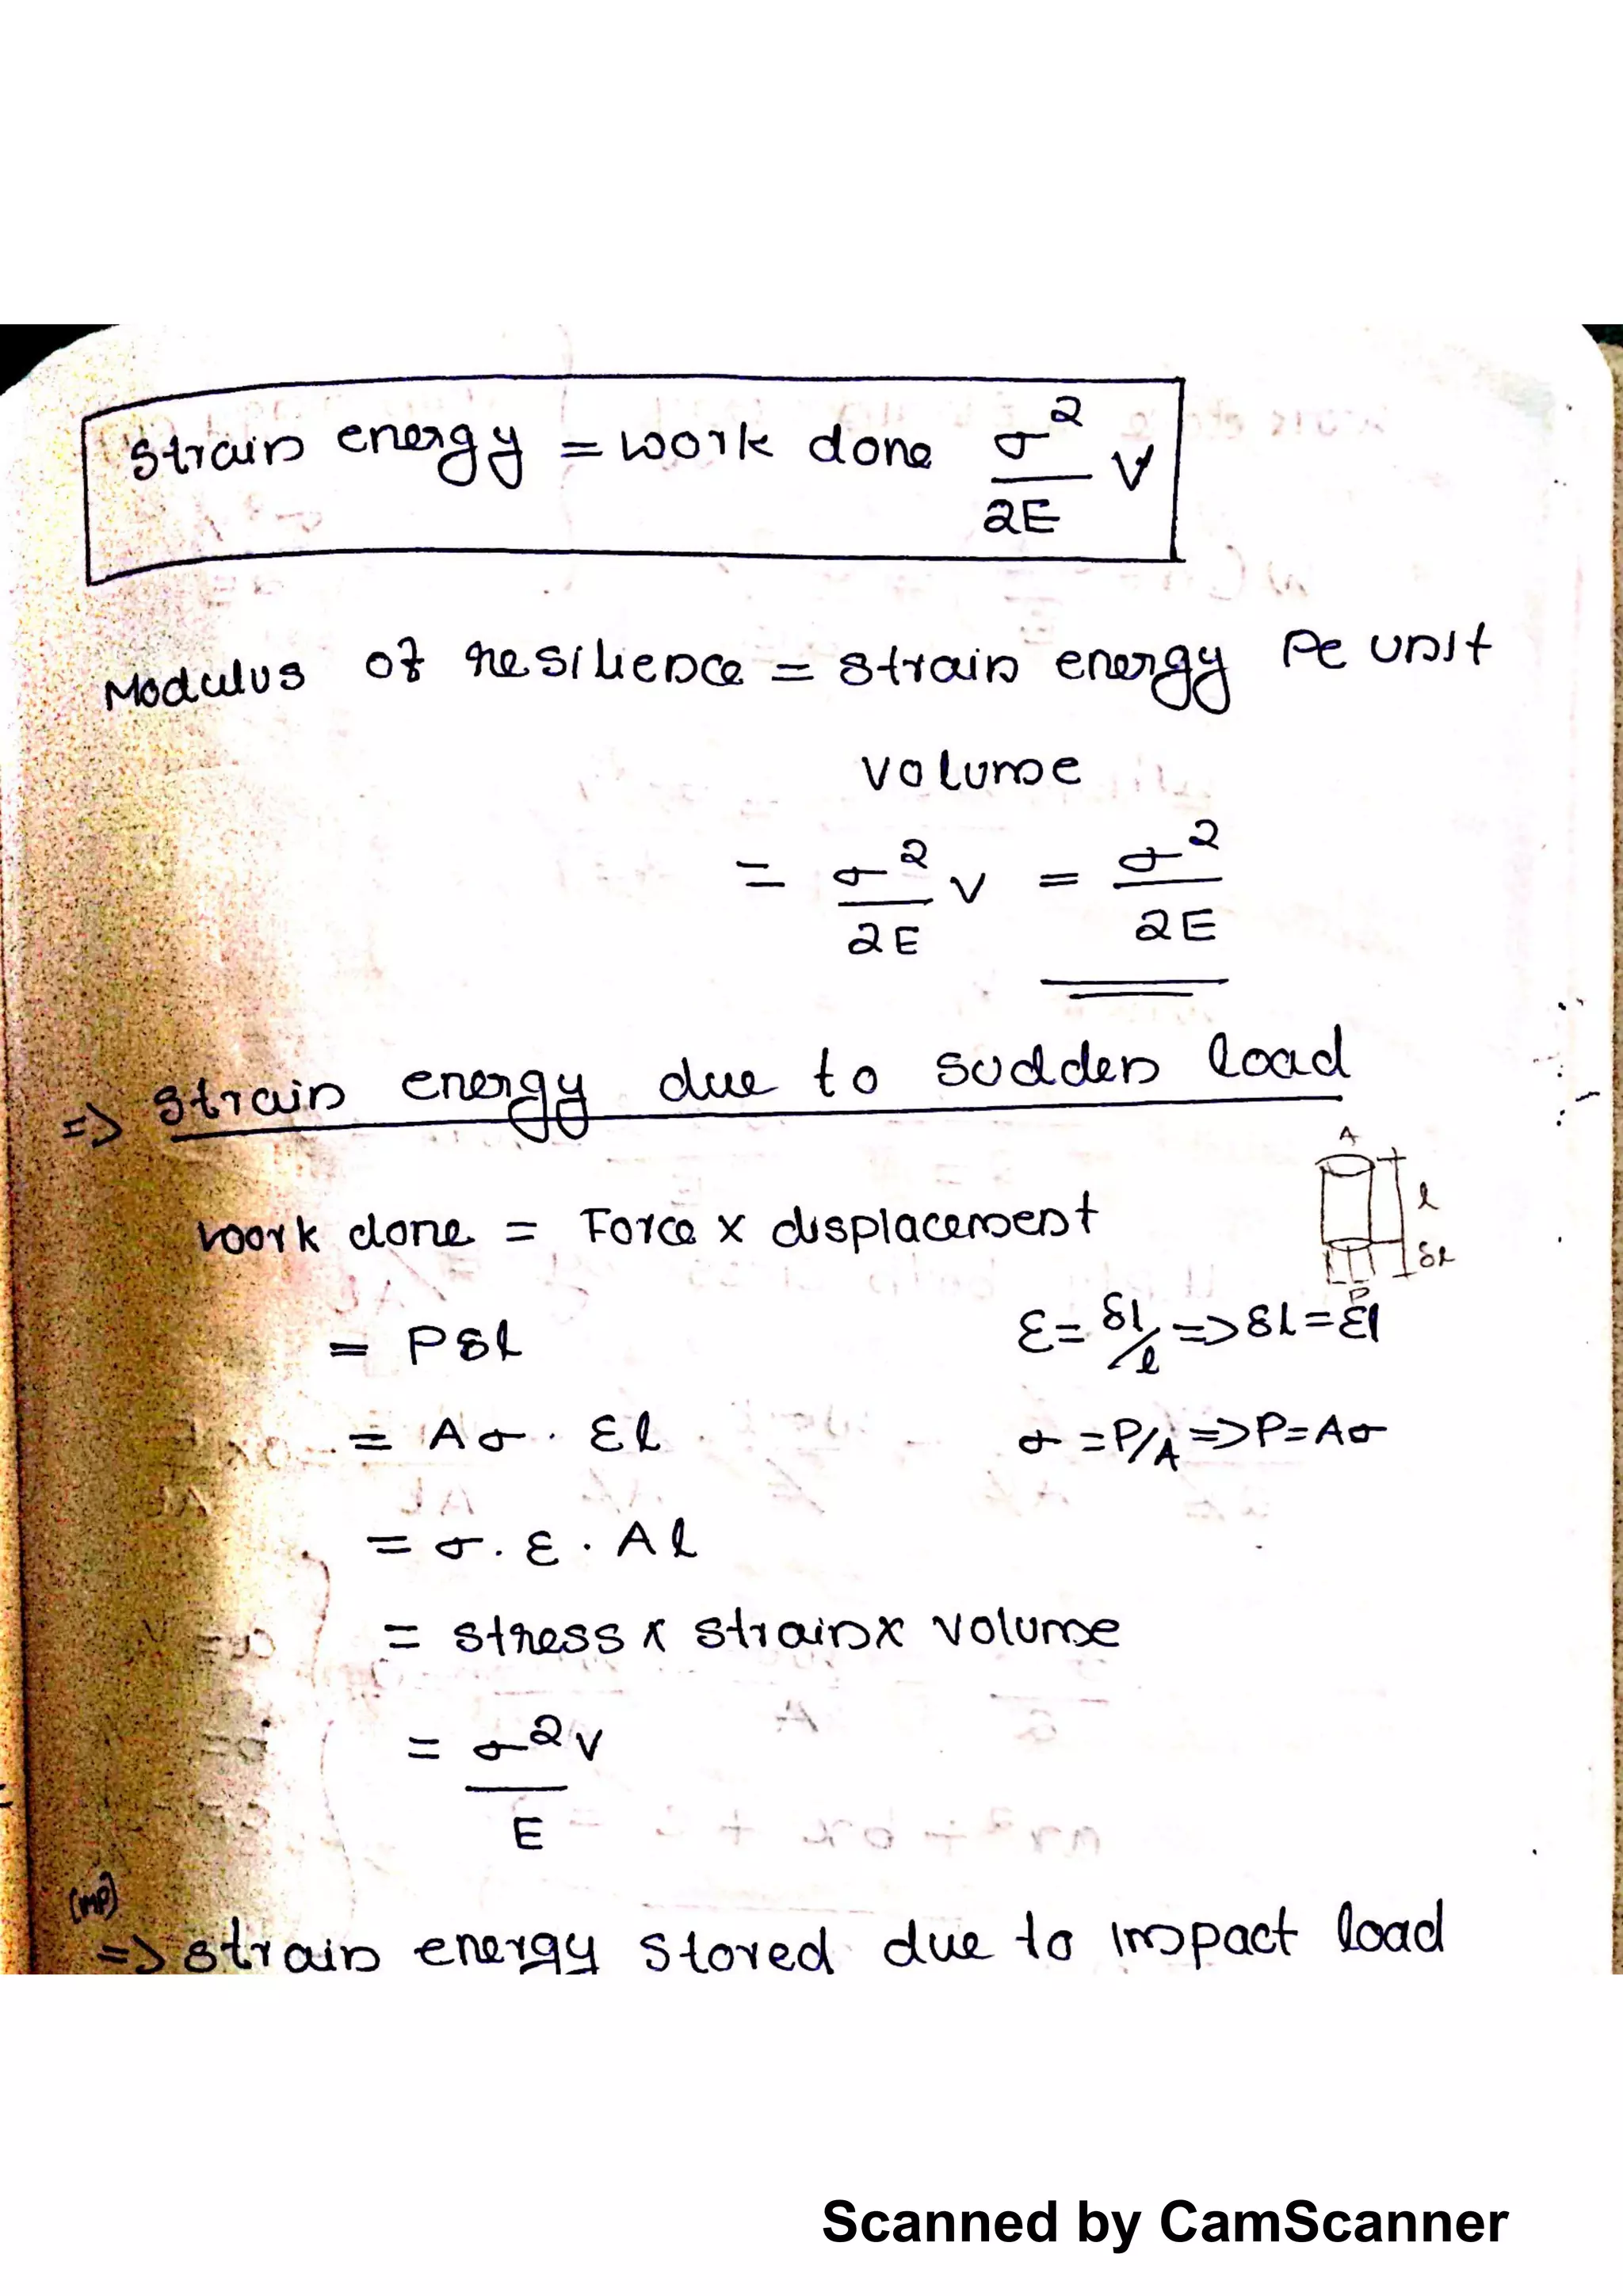 strain energy = work done σ²/2E V
Modulus of resilience = strain energy Pe unit
volume
= σ²/2E V = σ²/2E
=> strain energy due to sudden load
A
l
δl
P
work done = Force x displacement
= Pδl
ε = δl/l => δl = εl
= Aσ · εl
σ = P/A => P = Aσ
= σ · ε · Al
= stress x strain x volume
= σ²V/E
(MP)
=> strain energy stored due to impact load
Scanned by CamScanner